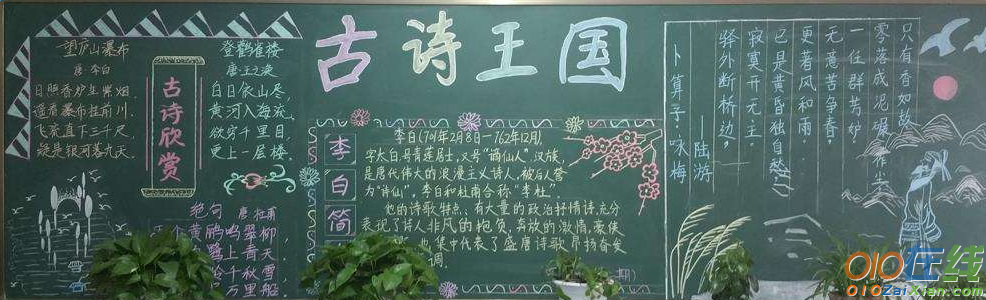 古诗王国
望庐山瀑布
唐 李白
日照香炉生紫烟,
遥看瀑布挂前川,
飞流直下三千尺,
疑是银河落九天。
古诗欣赏
登鹳雀楼
唐 王之涣
白日依山尽,
黄河入海流,
欲穷千里目,
更上一层楼。
绝句 唐 杜甫
个黄鹂鸣翠柳,
鹭上青天,
千秋雪,
万里船
李白简
李白(701年2月8日-762年12月),
字太白,号青莲居士,又号"谪仙人",汉族,
是唐代伟大的浪漫主义诗人,被后人誉
为"诗仙"。李白和杜甫合称"李杜"。
他的诗歌特点:有大量的政治抒情诗,充分
表现了诗人非凡的抱负,奔放的激情,豪侠
也集中代表了盛唐诗歌昂扬奋发
调。
期)
卜算子·咏梅
——陆游
驿外断桥边,
寂寞开无主。
已是黄昏独自愁,
更着风和雨。
无意苦争春,
一任群芳妒
零落成泥碾作尘
只有香如故。
010在线
010ZaiXian.com